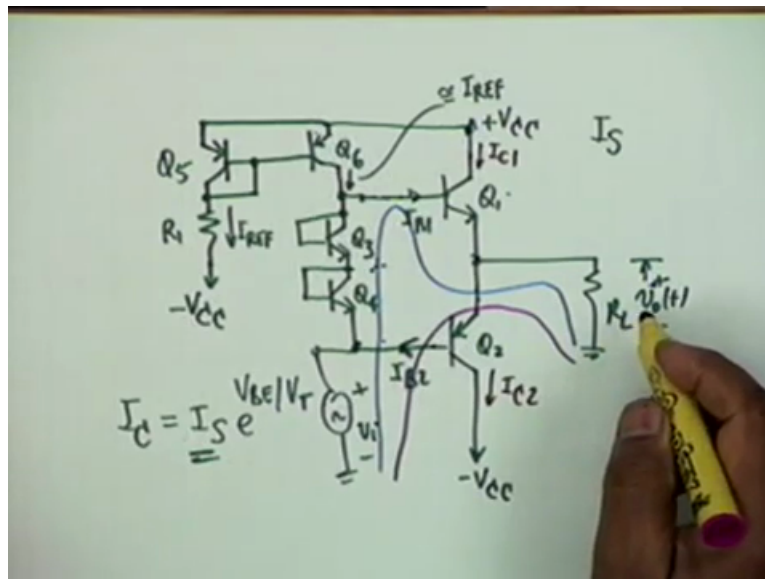 ≃ I_REF
+V_CC
I_S
Q5
Q6
I_C1
Q1
R1
I_REF
I_B1
Q3
-V_CC
Q4
R_L
v_o(t)
I_B2
Q2
I_C2
I_C = I_S e^{V_BE/V_T}
+
V_i
-
-V_CC